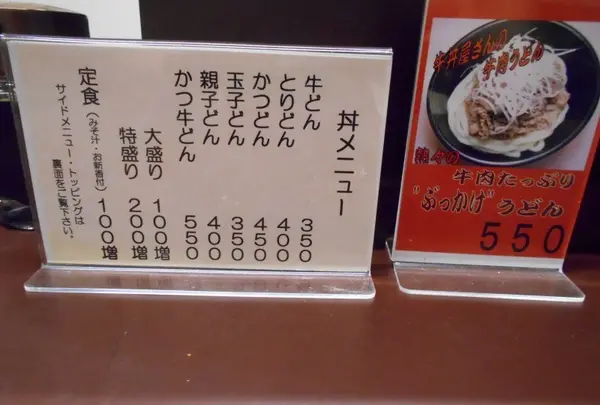 丼メニュー
牛どん 350
とりどん 400
かつどん 450
玉子どん 350
親子どん 400
かつ牛どん 550
大盛り 100増
特盛り 200増
定食(みそ汁・お新香付) 100増
サイドメニュー・トッピングは
裏面をご覧下さい。
牛丼屋さんの
牛肉うどん
牛肉たっぷり
"ぶっかけ"うどん
550